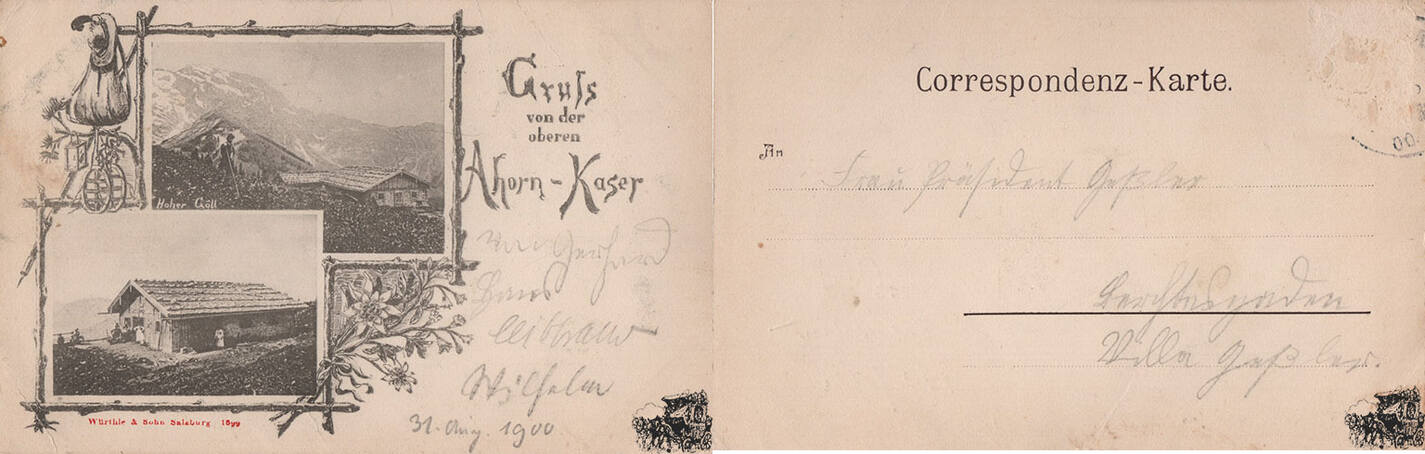 Gruss
von der
oberen
Ahorn-Kaser
Hoher Göll
von Gerhard
Hans
Wilhelm
31. Aug. 1900
Würthle & Sohn Salzburg 1899
Correspondenz-Karte.
An
Frau Präsident Geßler
Berchtesgaden
Villa Geßler.